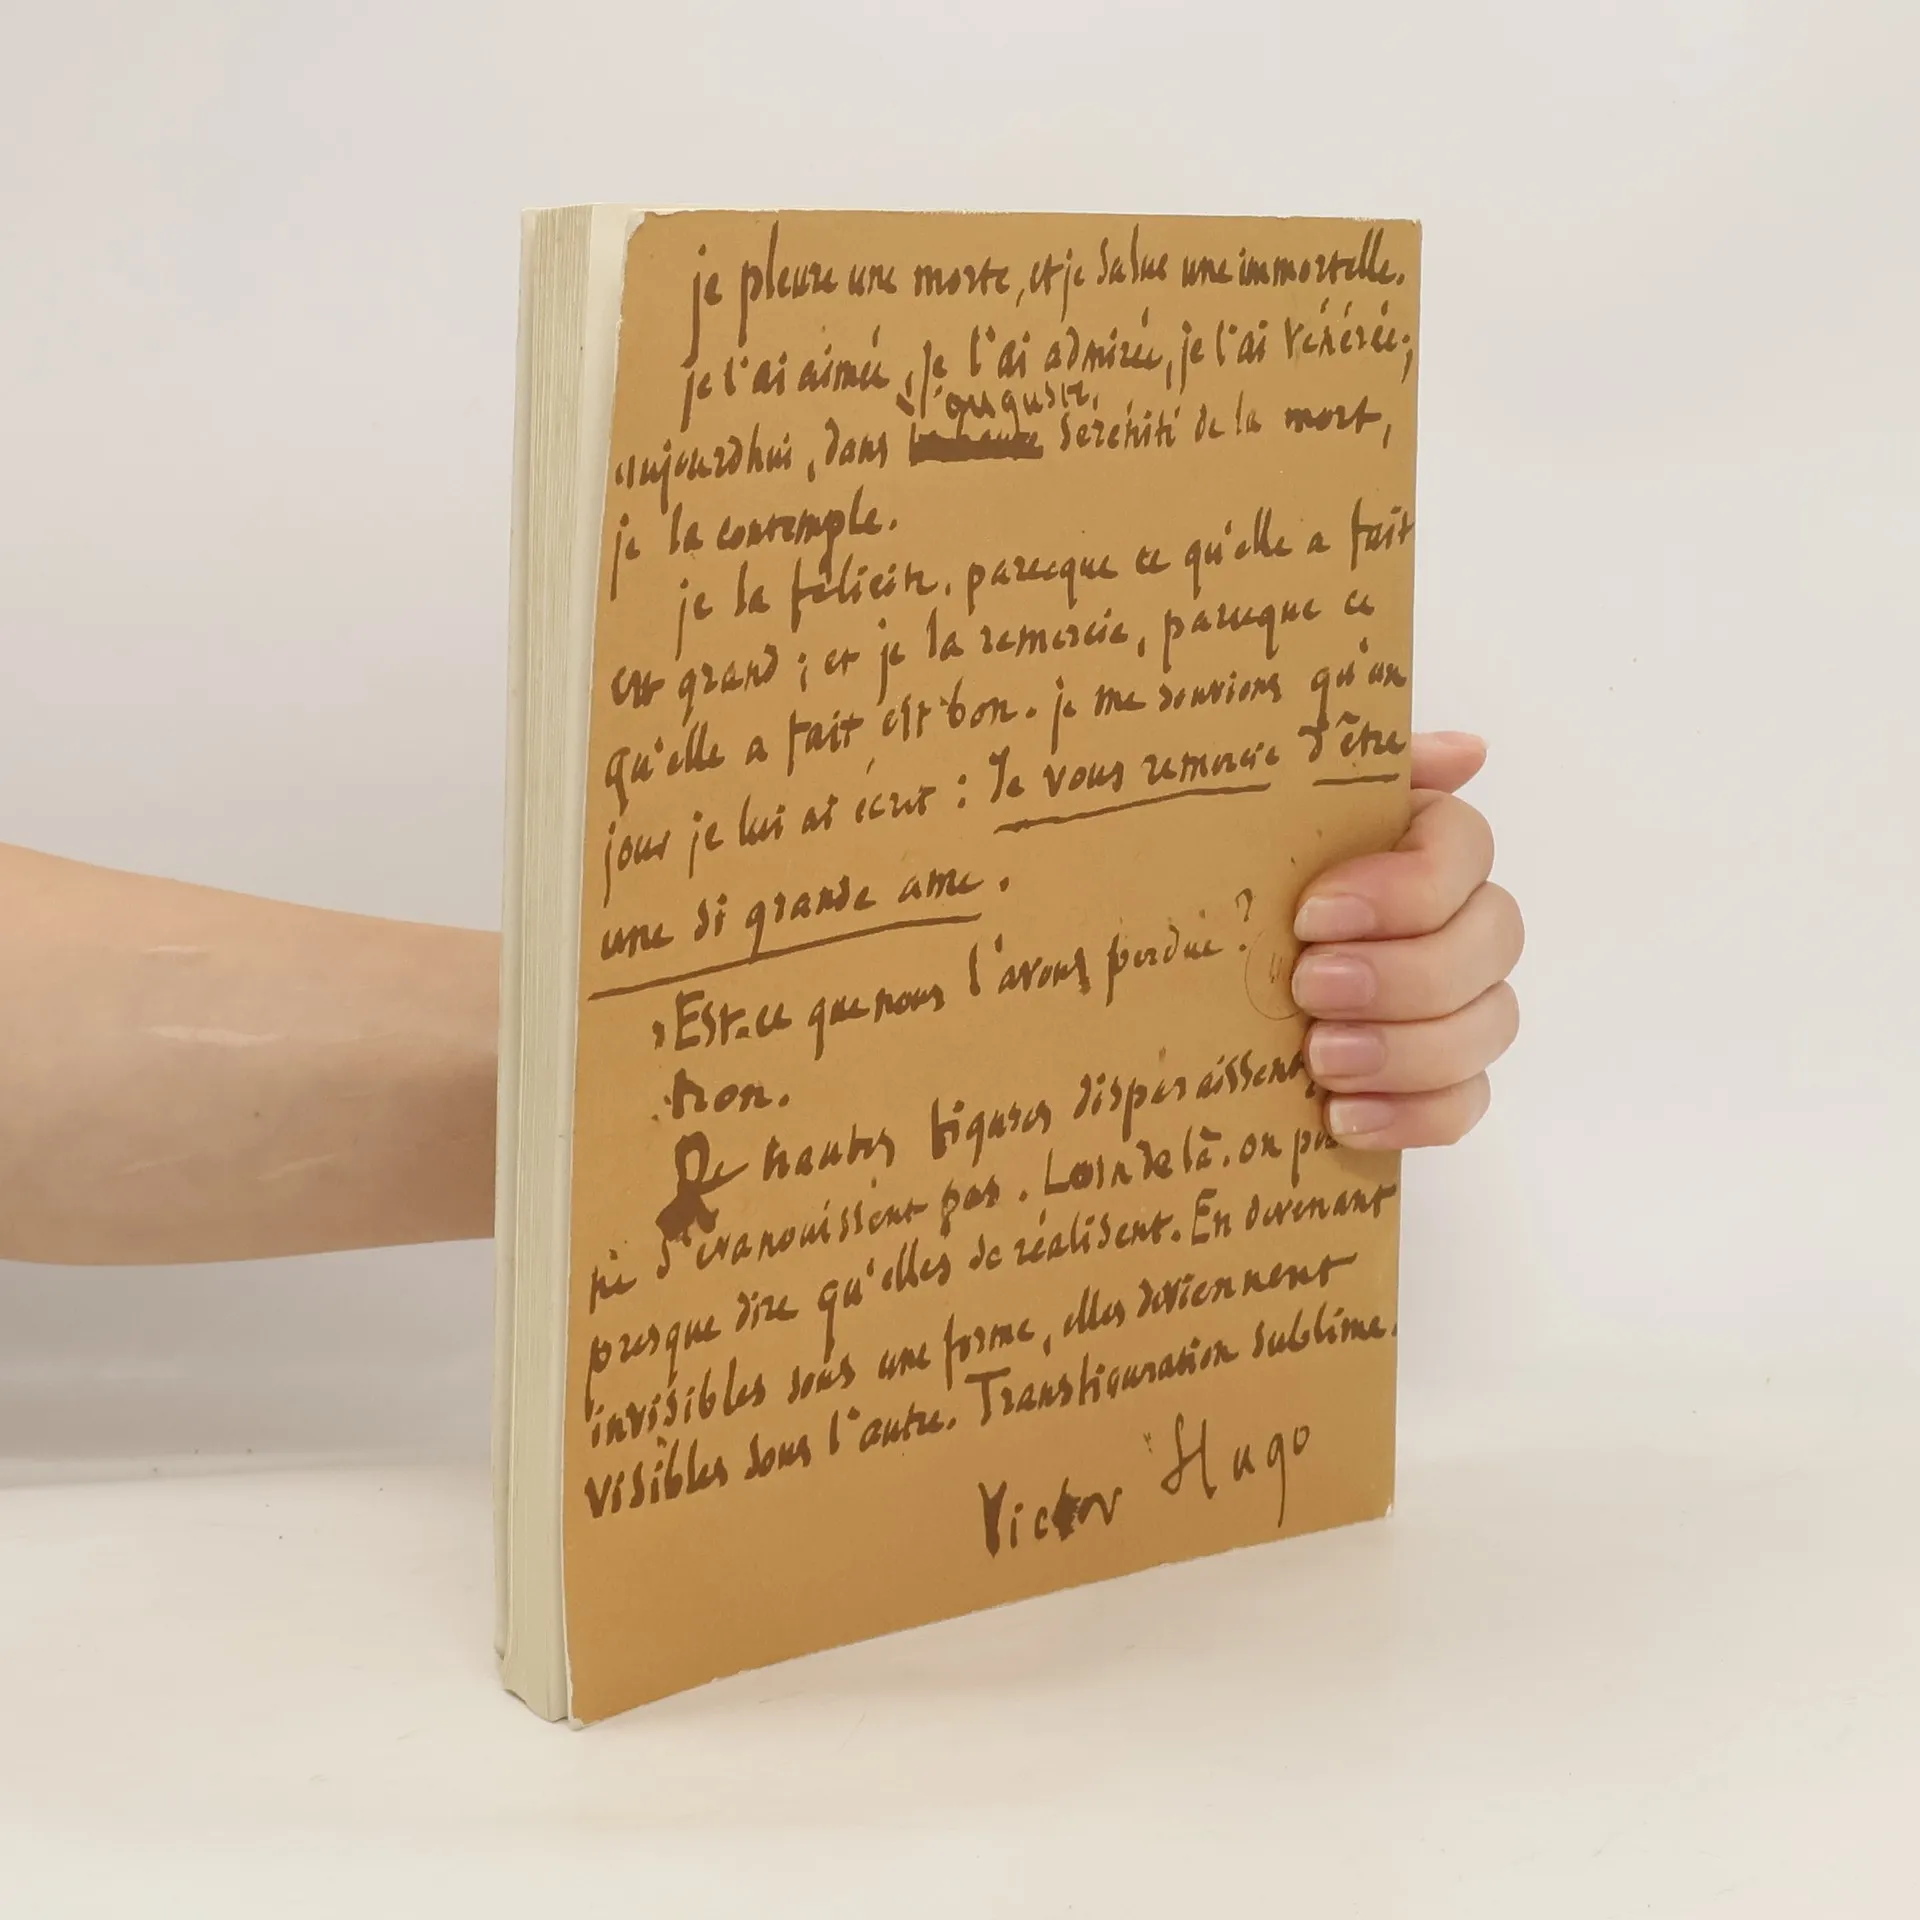 je pleure une morte, et je salue une immortelle.
je l'ai aimée, je l'ai admirée, je l'ai vénérée;
l'auguste
aujourdhui, dans sérénité de la mort,
je la contemple.
je la félicite, parceque ce qu'elle a fait
est grand; et je la remercie, parceque ce
qu'elle a fait est bon. je me souviens qu'un
jour je lui ai écrit : Je vous remercie d'être
une si grande ame.
Est-ce que nous l'avons perdue?
Non.
De hautes figures disparaissent,
ne s'evanouissent pas. Loin de là. on
presque dire qu'elles se réalisent. En devenant
invisibles sous une forme, elles deviennent
visibles sous l'autre. Transfiguration sublime.
Victor Hugo